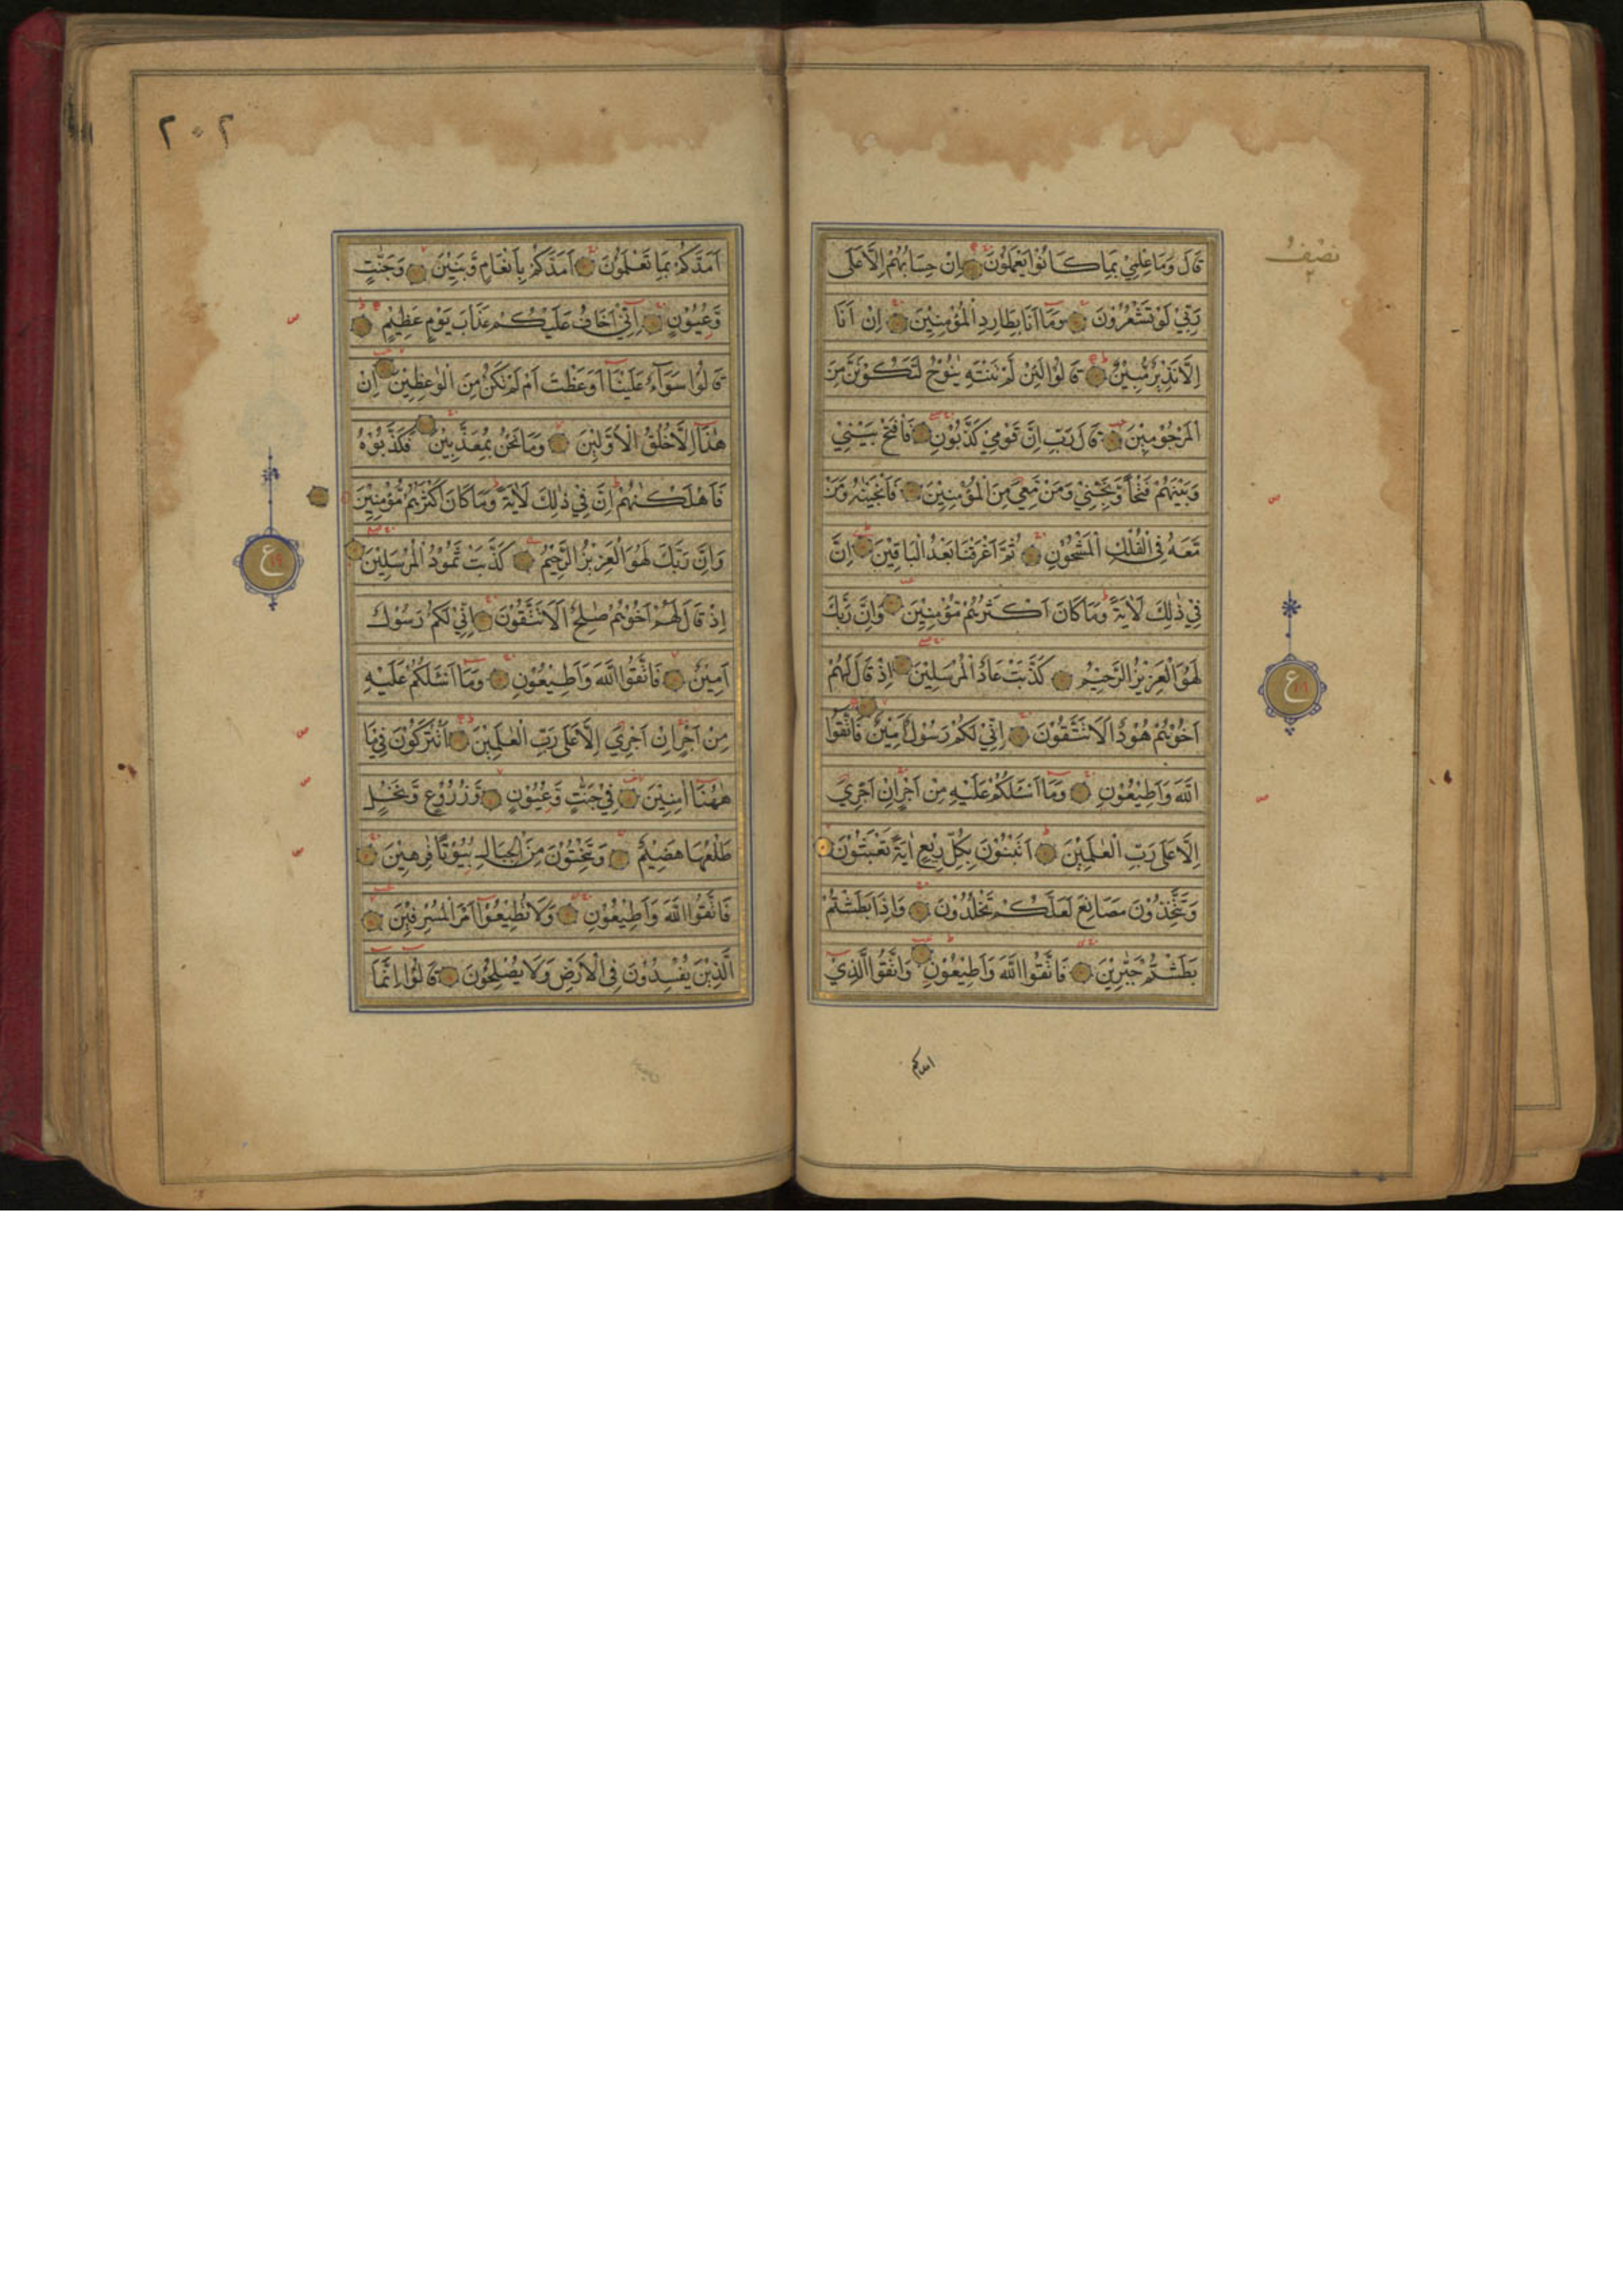 نصف
قَالَ وَمَا عِلْمِيْ بِمَا كَانُوْا يَعْمَلُوْنَ اِنْ حِسَابُهُمْ اِلَّا عَلٰى
رَبِّيْ لَوْ تَشْعُرُوْنَ وَمَا اَنَا بِطَارِدِ الْمُؤْمِنِيْنَ اِنْ اَنَا
اِلَّا نَذِيْرٌ مُّبِيْنٌ قَالُوْا لَئِنْ لَّمْ تَنْتَهِ يٰنُوْحُ لَتَكُوْنَنَّ مِنَ
الْمَرْجُوْمِيْنَ قَالَ رَبِّ اِنَّ قَوْمِيْ كَذَّبُوْنِ فَافْتَحْ بَيْنِيْ
وَبَيْنَهُمْ فَتْحًا وَّنَجِّنِيْ وَمَنْ مَّعِيَ مِنَ الْمُؤْمِنِيْنَ فَاَنْجَيْنٰهُ وَمَنْ
مَّعَهٗ فِي الْفُلْكِ الْمَشْحُوْنِ ثُمَّ اَغْرَقْنَا بَعْدُ الْبَاقِيْنَ اِنَّ
فِيْ ذٰلِكَ لَاٰيَةً وَمَا كَانَ اَكْثَرُهُمْ مُّؤْمِنِيْنَ وَاِنَّ رَبَّكَ
لَهُوَ الْعَزِيْزُ الرَّحِيْمُ كَذَّبَتْ عَادُ الْمُرْسَلِيْنَ اِذْ قَالَ لَهُمْ
اَخُوْهُمْ هُوْدٌ اَلَا تَتَّقُوْنَ اِنِّيْ لَكُمْ رَسُوْلٌ اَمِيْنٌ فَاتَّقُوا
اللّٰهَ وَاَطِيْعُوْنِ وَمَا اَسْئَلُكُمْ عَلَيْهِ مِنْ اَجْرٍ اِنْ اَجْرِيَ
اِلَّا عَلٰى رَبِّ الْعٰلَمِيْنَ اَتَبْنُوْنَ بِكُلِّ رِيْعٍ اٰيَةً تَعْبَثُوْنَ
وَتَتَّخِذُوْنَ مَصَانِعَ لَعَلَّكُمْ تَخْلُدُوْنَ وَاِذَا بَطَشْتُمْ
بَطَشْتُمْ جَبّٰرِيْنَ فَاتَّقُوا اللّٰهَ وَاَطِيْعُوْنِ وَاتَّقُوا الَّذِيْ
امدکم
ع
٢٠٢
اَمَدَّكُمْ بِمَا تَعْلَمُوْنَ اَمَدَّكُمْ بِاَنْعَامٍ وَّبَنِيْنَ وَجَنّٰتٍ
وَّعُيُوْنٍ اِنِّيْ اَخَافُ عَلَيْكُمْ عَذَابَ يَوْمٍ عَظِيْمٍ
قَالُوْا سَوَآءٌ عَلَيْنَا اَوَعَظْتَ اَمْ لَمْ تَكُنْ مِنَ الْوٰعِظِيْنَ اِنْ
هٰذَا اِلَّا خُلُقُ الْاَوَّلِيْنَ وَمَا نَحْنُ بِمُعَذَّبِيْنَ فَكَذَّبُوْهُ
فَاَهْلَكْنٰهُمْ اِنَّ فِيْ ذٰلِكَ لَاٰيَةً وَمَا كَانَ اَكْثَرُهُمْ مُّؤْمِنِيْنَ
وَاِنَّ رَبَّكَ لَهُوَ الْعَزِيْزُ الرَّحِيْمُ كَذَّبَتْ ثَمُوْدُ الْمُرْسَلِيْنَ
اِذْ قَالَ لَهُمْ اَخُوْهُمْ صٰلِحٌ اَلَا تَتَّقُوْنَ اِنِّيْ لَكُمْ رَسُوْلٌ
اَمِيْنٌ فَاتَّقُوا اللّٰهَ وَاَطِيْعُوْنِ وَمَا اَسْئَلُكُمْ عَلَيْهِ
مِنْ اَجْرٍ اِنْ اَجْرِيَ اِلَّا عَلٰى رَبِّ الْعٰلَمِيْنَ اَتُتْرَكُوْنَ فِيْ مَا
هٰهُنَا اٰمِنِيْنَ فِيْ جَنّٰتٍ وَّعُيُوْنٍ وَّزُرُوْعٍ وَّنَخْلٍ
طَلْعُهَا هَضِيْمٌ وَتَنْحِتُوْنَ مِنَ الْجِبَالِ بُيُوْتًا فٰرِهِيْنَ
فَاتَّقُوا اللّٰهَ وَاَطِيْعُوْنِ وَلَا تُطِيْعُوْا اَمْرَ الْمُسْرِفِيْنَ
الَّذِيْنَ يُفْسِدُوْنَ فِي الْاَرْضِ وَلَا يُصْلِحُوْنَ قَالُوْا اِنَّمَا
ع